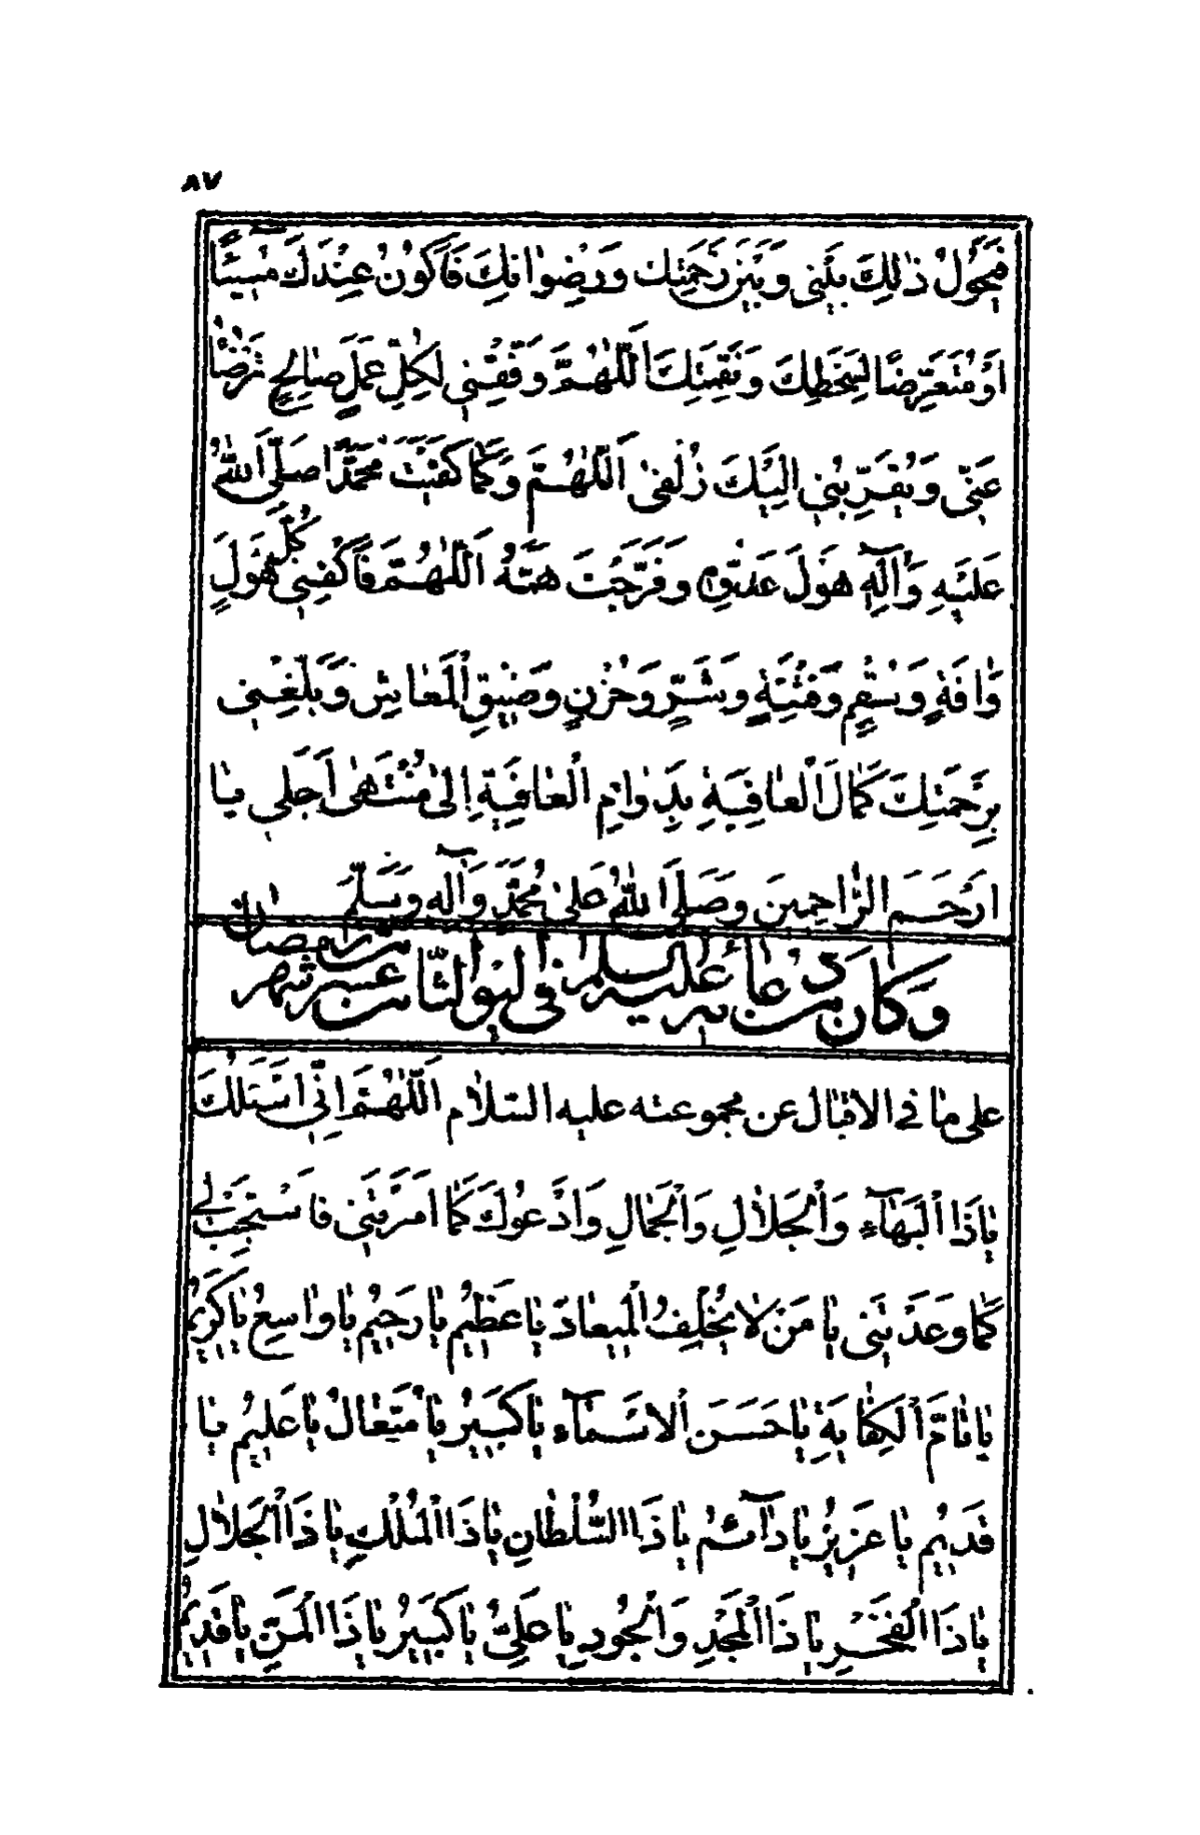 ٨٧
فَيَحُولُ ذٰلِكَ بَيْنِي وَبَيْنَ رَحْمَتِكَ وَرِضْوٰانِكَ فَأَكُونُ عِنْدَكَ مُسِيئًا
اَوْ مُتَعَرِّضًا لِسَخَطِكَ وَنَقِمَتِكَ اَللّٰهُمَّ وَفِّقْنِي لِكُلِّ عَمَلٍ صٰالِحٍ تَرْضٰى
عَنِّي وَيُقَرِّبُنِي اِلَيْكَ زُلْفىٰ اَللّٰهُمَّ وَكَمٰا كَفَيْتَ مُحَمَّدًا صَلَّى اللّٰهُ
عَلَيْهِ وَآلِهِ هَوْلَ عَدُوِّهِ وَفَرَّجْتَ هَمَّهُ اَللّٰهُمَّ فَاكْفِنِي كُلَّ هَوْلٍ
وَاٰفَةٍ وَسُقْمٍ وَفِتْنَةٍ وَشَرٍّ وَحُزْنٍ وَضِيْقِ الْمَعٰاشِ وَبَلِّغْنِي
بِرَحْمَتِكَ كَمٰالَ الْعٰافِيَةِ بِدَوٰامِ الْعٰافِيَةِ اِلىٰ مُنْتَهىٰ اَجَلِي يٰا
اَرْحَمَ الرّٰاحِمِينَ وَصَلَّى اللّٰهُ عَلىٰ مُحَمَّدٍ وَآلِهِ وَسَلَّمَ
وَكٰانَ مِنْ دُعٰائِهِ عَلَيْهِ السَّلٰامُ فِي الْيَوْمِ الثّٰامِنَ عَشَرَ مِنْ شَهْرِ رَمَضٰانَ
على مٰا في الاقبٰال عن مجموعته عليه السّلٰام اَللّٰهُمَّ اِنِّي اَسْئَلُكَ
يٰا ذَا الْبَهٰاۤءِ وَالْجَلٰالِ وَالْجَمٰالِ وَاَدْعُوكَ كَمٰا اَمَرْتَنِي فَاسْتَجِبْ لِي
كَمٰا وَعَدْتَنِي يٰا مَنْ لٰا يُخْلِفُ الْمِيعٰادَ يٰا عَظِيمُ يٰا رَحِيمُ يٰا وٰاسِعُ يٰا كَرِيمُ
يٰا تٰامَّ الْكِفٰايَةِ يٰا حَسَنَ الْاَسْمٰاۤءِ يٰا كَبِيرُ يٰا مُتَعٰالُ يٰا عَلِيمُ يٰا
قَدِيمُ يٰا عَزِيزُ يٰا دٰاۤئِمُ يٰا ذَا السُّلْطٰانِ يٰا ذَا الْمُلْكِ يٰا ذَا الْجَلٰالِ
يٰا ذَا الْفَخْرِ يٰا ذَا الْمَجْدِ وَالْجُودِ يٰا عَلِيُّ يٰا كَبِيرُ يٰا ذَا الْمَنِّ يٰا قَدِيمُ